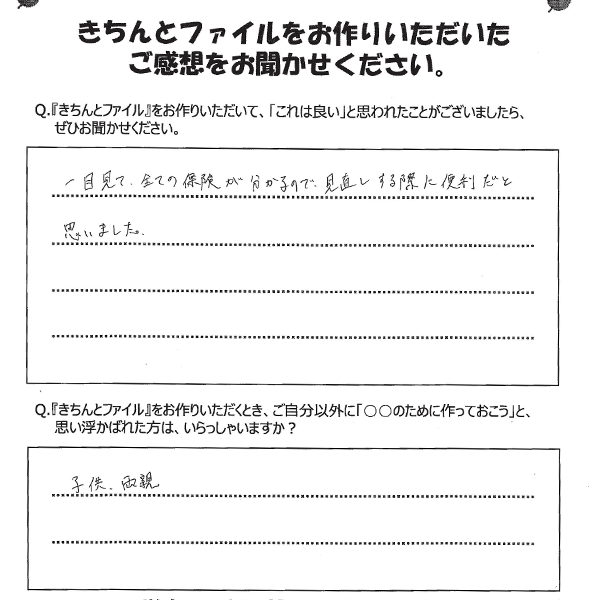 きちんとファイルをお作りいただいた
ご感想をお聞かせください。
Q.『きちんとファイル』をお作りいただいて、「これは良い」と思われたことがございましたら、
ぜひお聞かせください。
一目見て、全ての保険が分かるので、見直しする際に便利だと
思いました。
Q.『きちんとファイル』をお作りいただくとき、ご自分以外に「○○のために作っておこう」と、
思い浮かばれた方は、いらっしゃいますか？
子供、両親